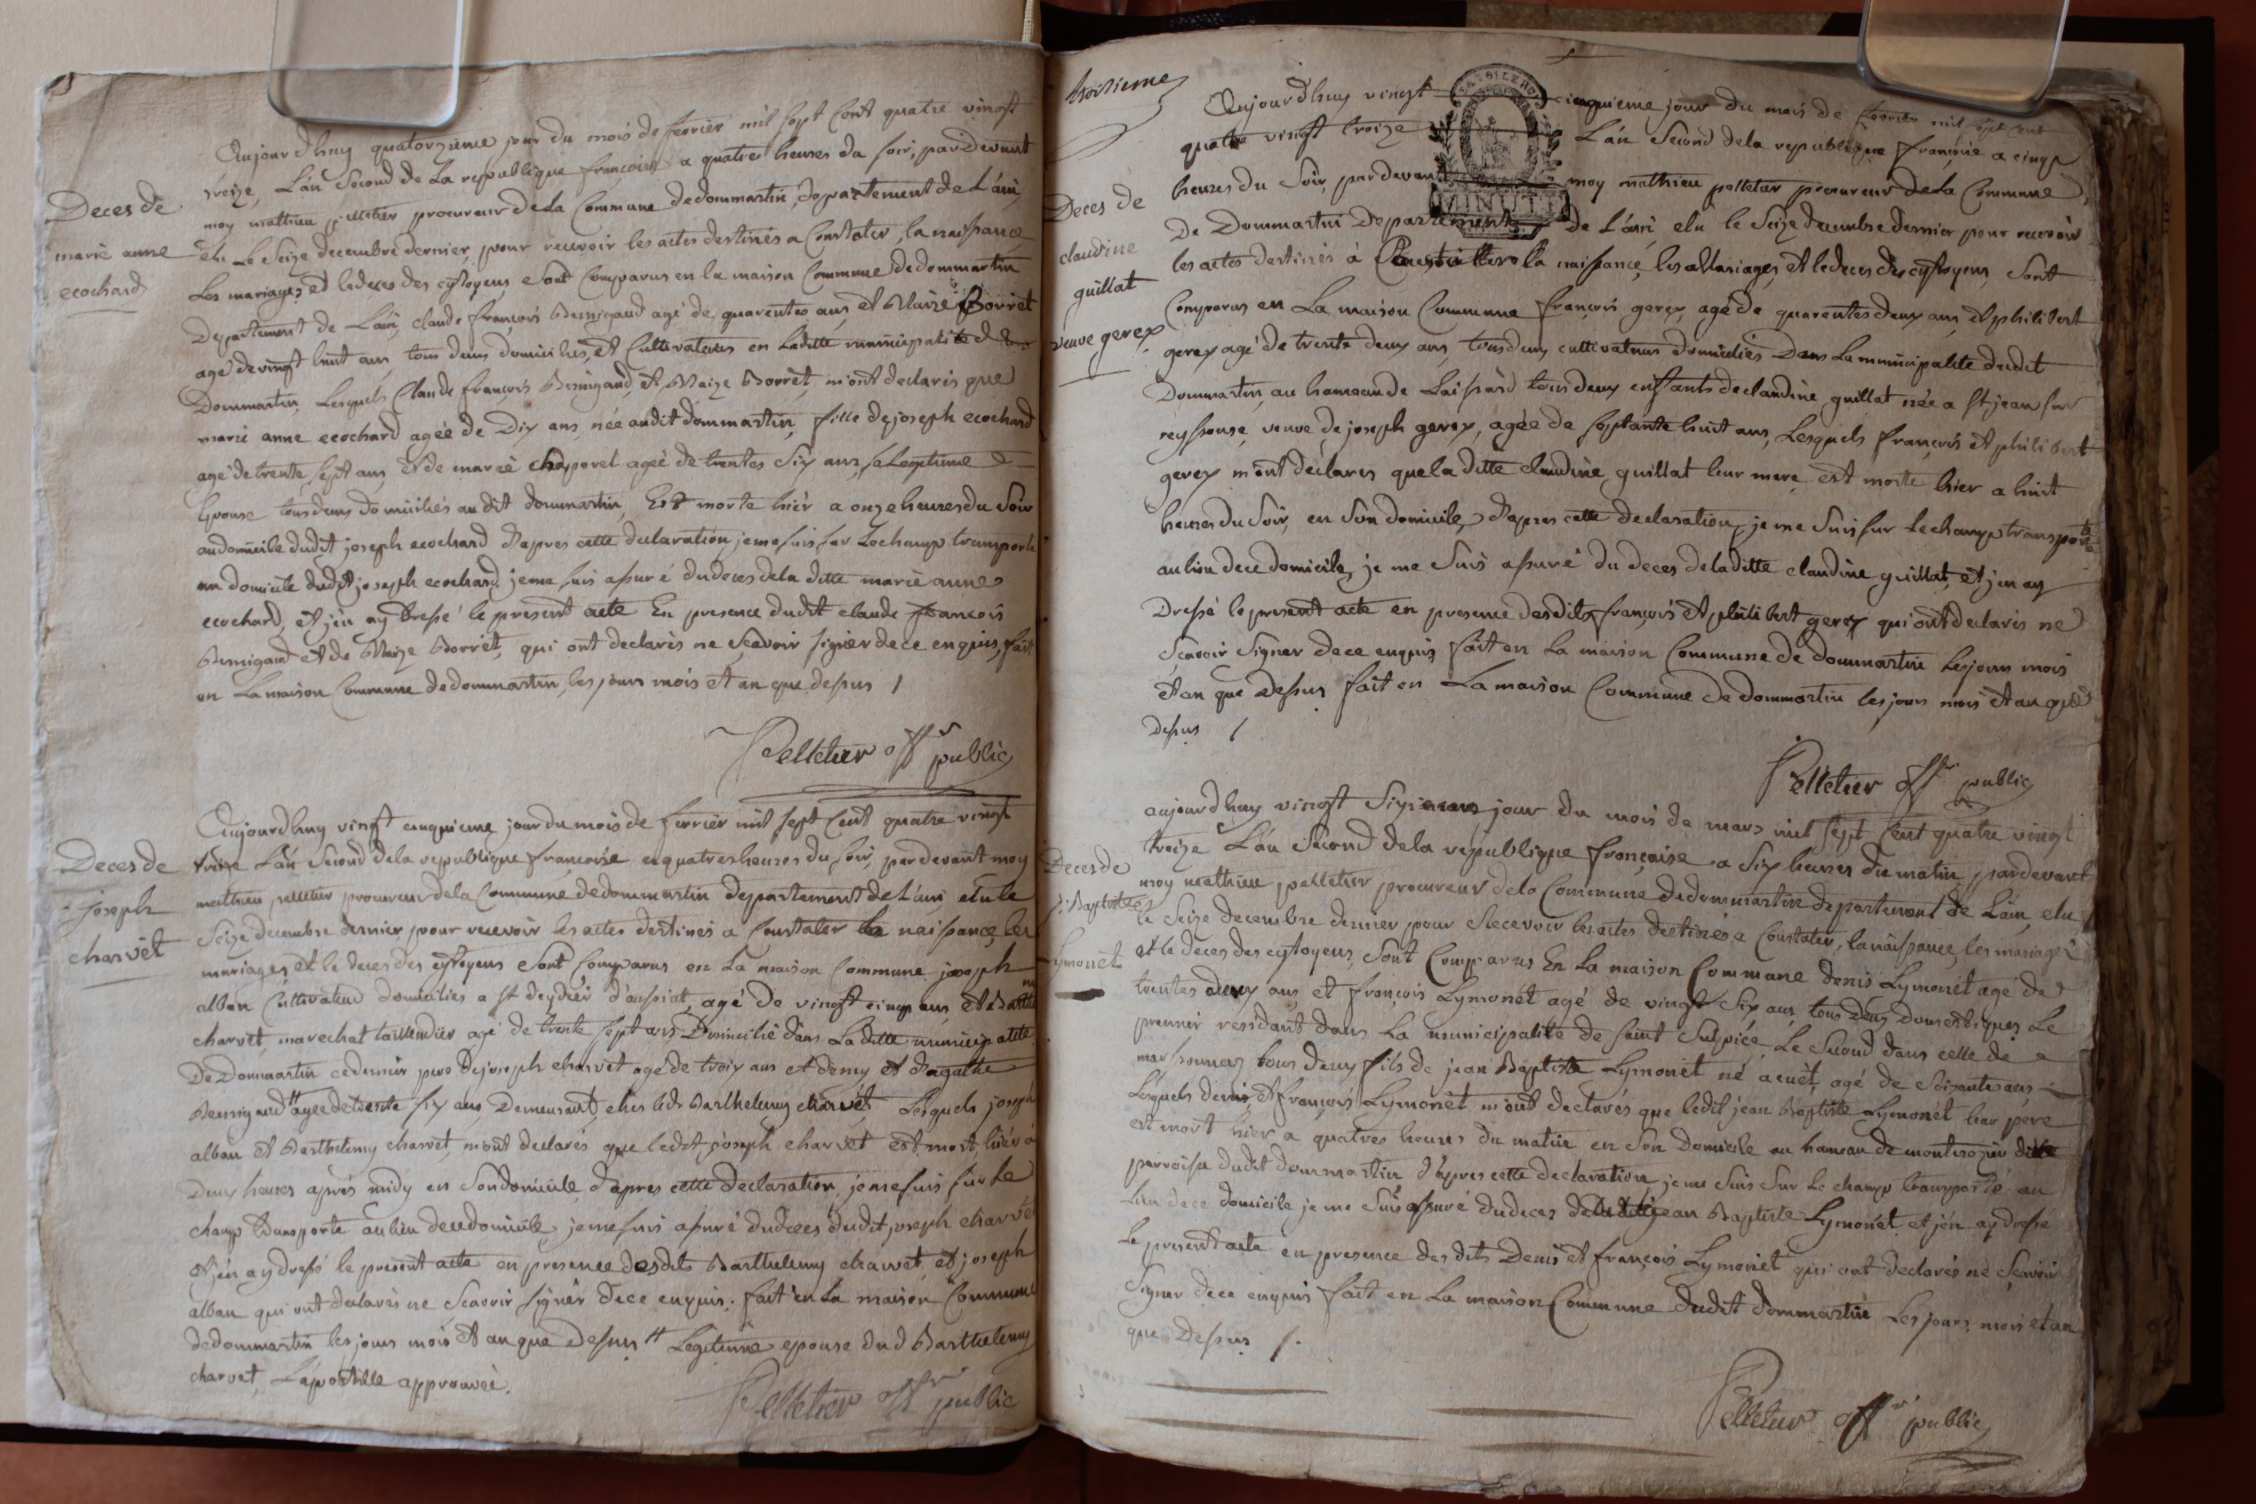 Aujourdhuy quatorzieme jour du mois de fevrier mil sept cent quatre vingt
treize, L'an Second de La republique francoise a quatres heures du soir, pardevant
moy mathieu pelletier procureur de La Commune de dommartin, departement de L'ain,
elu Le Seize decembre dernier, pour recevoir les actes destinés a Constater, la naissance
Les mariages et le deces des cytoyens sont Comparus en la maison Commune de dommartin
Deces de
marie anne
ecochard
Departement de L'ain, claude françois Bernigaud agé de quarentes ans, et Blaize Borret
agé de vingt huit ans, tous deux domiciliés, et Cultivateurs en Laditte municipalité de
Dommartin, Lesquels Claude françois Bernigaud, et Blaize Borret, m'ont declarés que
marie anne ecochard agée de Dix ans, née audit dommartin, fille de joseph ecochard
agé de trente sept ans, et de marie chaporet agée de trentes Six ans, sa Legitime
Epouse tous deux domiciliés au dit dommartin, Est morte hier a onze heures du Soir
au domicile dudit joseph ecochard D'apres cette declaration je me suis sur Le champ transporté
au domicile dudit joseph ecochard, je me suis assuré du deces de la ditte marie anne
ecochard, et j'en ay Dressé le present acte En presence dudit claude francois
Bernigaud et de Blaize Borret, qui ont declarés ne Scavoir signer de ce enquis, fait
en La maison Commune de dommartin, les jours mois et an que dessus /
Pelletier offr public
Aujourdhuy vingt cinquieme jour du mois de fevrier mil sept Cent quatre vingt
treize L'an Second de la republique francoise a quatres heures du soir, pardevant moy
mathieu pelletier procureur de la Commune de dommartin departement de L'ain, elu le
Seize decembre dernier pour recevoir les actes destinés a Constater la naissance, les
mariages, et le deces des cytoyens Sont Comparus en La maison Commune joseph
Deces de
joseph
charvet
alban Cultivateur domicilies a st Deydier d'aussiat, agé de vingt cinq ans, et
charvet, marechal taillendier agé de trente sept ans Domicilié dans La ditte municipalité
De Dommartin ce dernier pere de joseph charvet agé de troix ans et demy et D'agathe
Bernigaud # agée de trente six ans, Demeurant, ches led. Barthelemy charvet, Lesquels joseph
alban et Barthelemy charvet, m'ont declarés que ledit joseph charvet est mort hier a
Deux heures aprés midy en Son domicile, d'apres cette declaration, je me suis sur Le
champ transporté au lieu de ce domicile je me suis assuré du deces dudit joseph charvet
et j'en ay dressé le present acte en presence desdits Barthelemy charvet, et joseph
alban qui ont declarés ne Scavoir signer de ce enquis. fait en La maison Commune
de dommartin les jours mois et an que Dessus # Legitime epouse dud Barthelemy
charvet, L'apostille approuvée.
Pelletier offr public
troisieme
Aujourdhuy vingt cinquieme jour du mois de fevrier mil sept cent
quatre vingt treize L'an Second de la republique françoise a cinq
heures du Soir, par devant moy mathieu pelletier procureur de La Commune,
De Dommartin Departement de L'ain elu le Seize decembre dernier pour recevoir
les actes destinés à la naissance, les Mariages, et le deces des cytoyens, Sont
Deces de
claudine
guillat
veuve gerex
Comparus en La maison Commune françois gerex, agé de quarentes deux ans, et philibert
gerex agé de trente deux ans, tous deux cultivateurs domiciliés Dans La municipalité dudit
Dommartin, au hameau de tous deux enfants de claudine guillat née a st jean sur
reyssouse, veuve de joseph gerex, agée de septante huit ans, Lesquels françois et philibert
gerex m'ont déclarés que la ditte claudine guillat leur mere, est morte hier a huit
heures du Soir, en Son domicile, D'apres cette declaration je me Suis sur Le champ transporté
au lieu de ce domicile, je me Suis assuré du deces de laditte claudine guillat, et j'en ay
Dressé le present acte en presence desdits françois et philibert gerex qui ont declarés ne
Scavoir Signer de ce enquis, fait en La maison Commune de dommartin Les jours mois
et an que Dessus fait en La maison Commune de dommartin les jours mois et an que
Dessus /
Pelletier offr public
aujourdhuy vingt Sixieme jour du mois de mars mil sept Cent quatre vingt
treize L'an Second de la republique françoise a Six heures du matin, pardevant
moy mathieu pelletier procureur de la Commune de dommartin departement de L'ain, elu
le Seize decembre dernier pour Recevoir les actes destinés a Constater, la naissance, les mariages
et le deces des cytoyens, Sont Comparus En La maison Commune denis Lymonet agé de
Deces de
j. Baptiste
Lymonet
trentes deux ans et françois Lymonet agé de vingt Six ans, tous Deux Domestiques Le
premier residant dans La municipalité de saint Sulpice, Le Second dans celle de
marsonnas tous deux fils de jean Baptiste Lymonet né a cuet, agé de Soixante ans
Lesquels denis et françois Lymonet m'ont declarés que ledit jean Baptiste Lymonet leur pere
est mort hier a quatres heures du matin en Son domicile au hameau de
parroisse dudit dommartin D'apres cette declaration je me Suis Sur Le champ transporté au
lieu de ce domicile je me Suis assuré du deces jean Baptiste Lymonet et j'en ay dressé
Le present acte en presence des dits Denis et françois Lymonet qui ont declarés ne Scavoir
Signer de ce enquis fait en La maison Commune dudit dommartin Les jours mois et an
que Dessus /.
Pelletier offr public